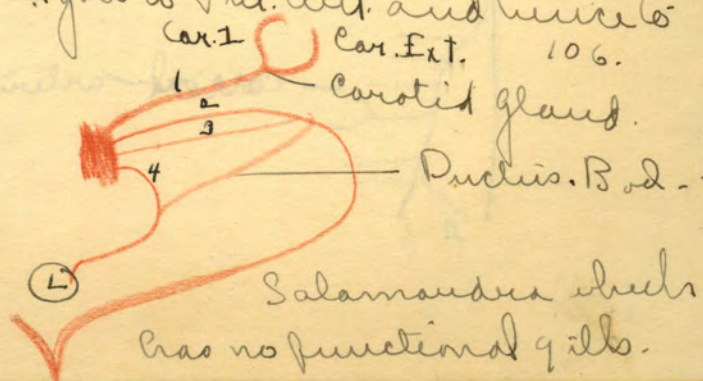 and hence to
Car. I Car. Ext. 106.
1 Carotid gland.
2
3
4 Ductus. Bod.-
L
Salamandra which
has no functional gills.